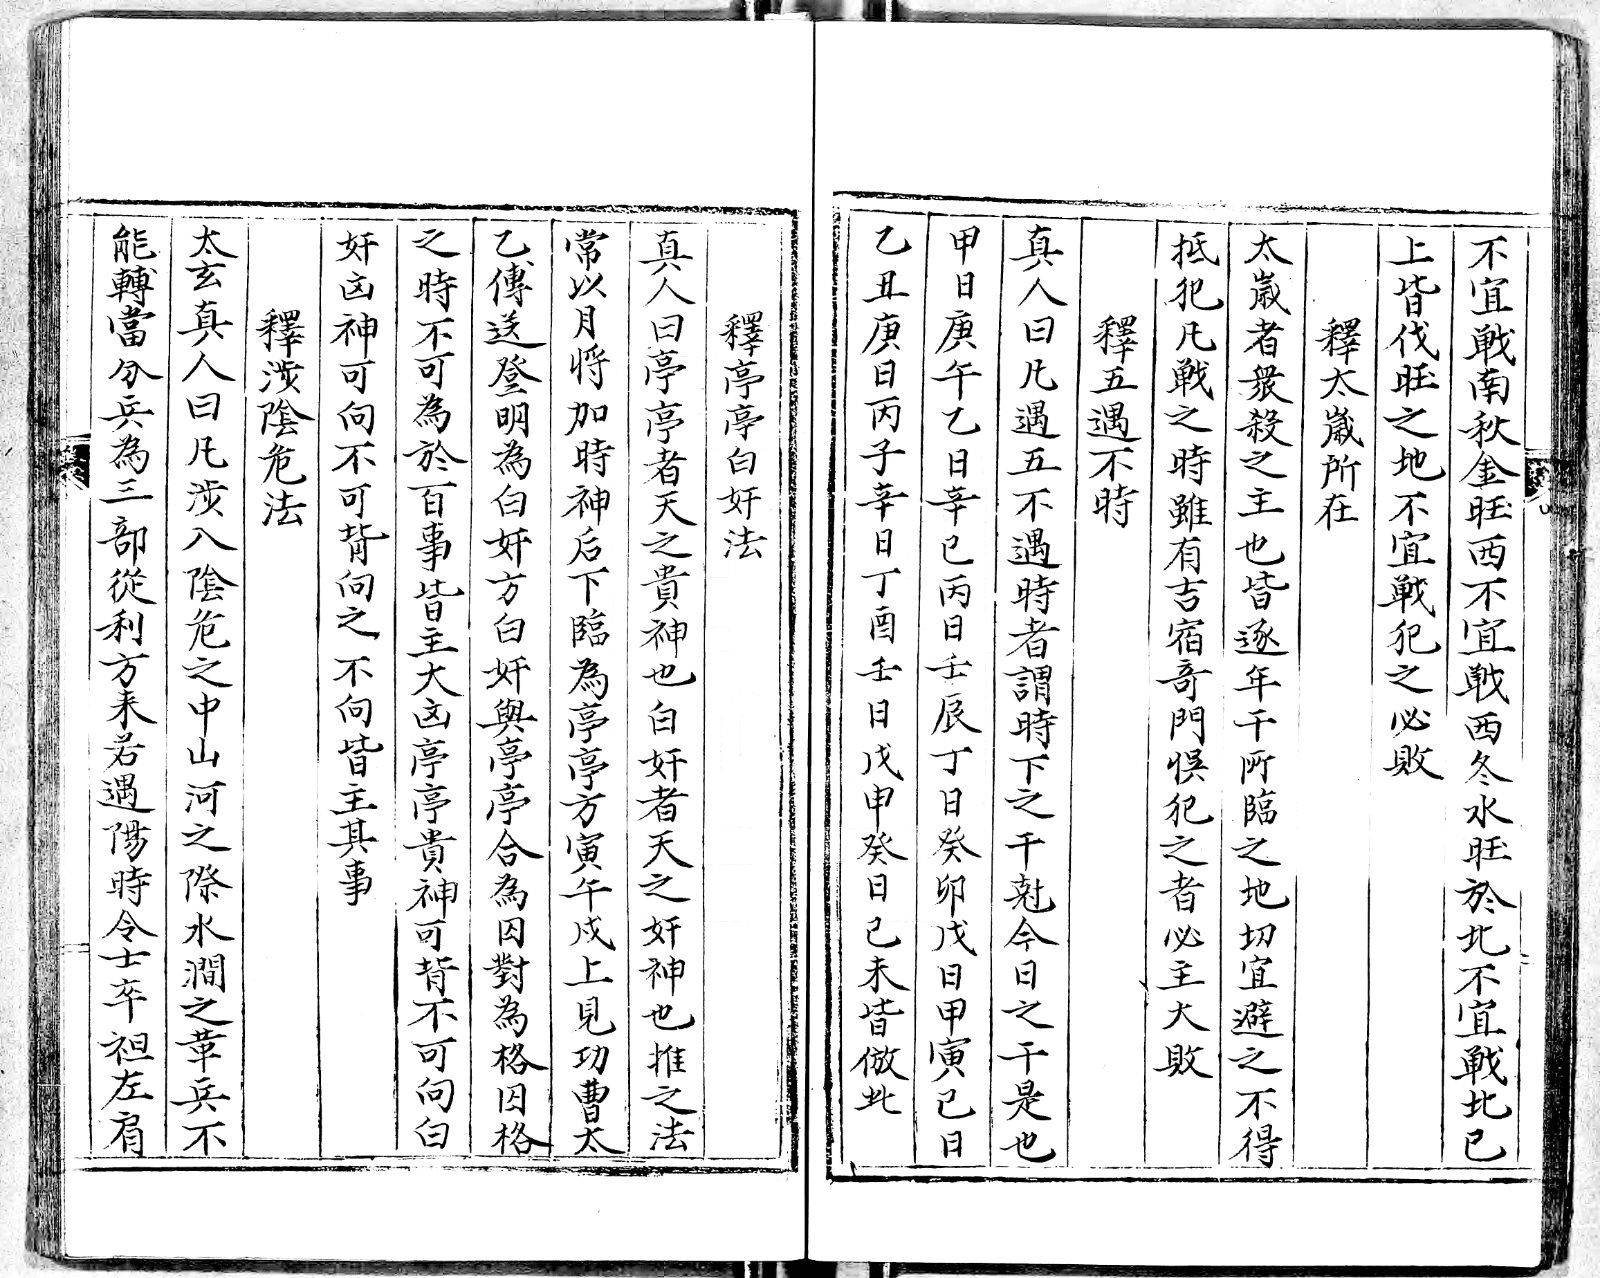 不宜戰南秋金旺西不宜戰西冬水旺於北不宜戰北已
上皆伐旺之地不宜戰犯之必敗
釋太嵗所在
太嵗者衆殺之主也皆逐年干所臨之地切宜避之不得
抵犯凡戰之時雖有吉宿奇門悞犯之者必主大敗
釋五遇不時
真人曰凡遇五不遇時者謂時下之干尅今日之干是也
甲日庚午乙日辛巳丙日壬辰丁日癸卯戊日甲寅己日
乙丑庚日丙子辛日丁酉壬日戊申癸日己未皆倣此
釋亭亭白奸法
真人曰亭亭者天之貴神也白奸者天之奸神也推之法
常以月將加時神后下臨為亭亭方寅午戌上見功曹太
乙傳送登明為白奸方白奸與亭亭合為囚對為格囚格
之時不可為於百事皆主大凶亭亭貴神可背不可向白
奸凶神可向不可背向之不向皆主其事
釋涉陰危法
太玄真人曰凡涉入陰危之中山河之際水澗之葦兵不
能轉當分兵為三部從利方来若遇陽時令士卒袒左肩